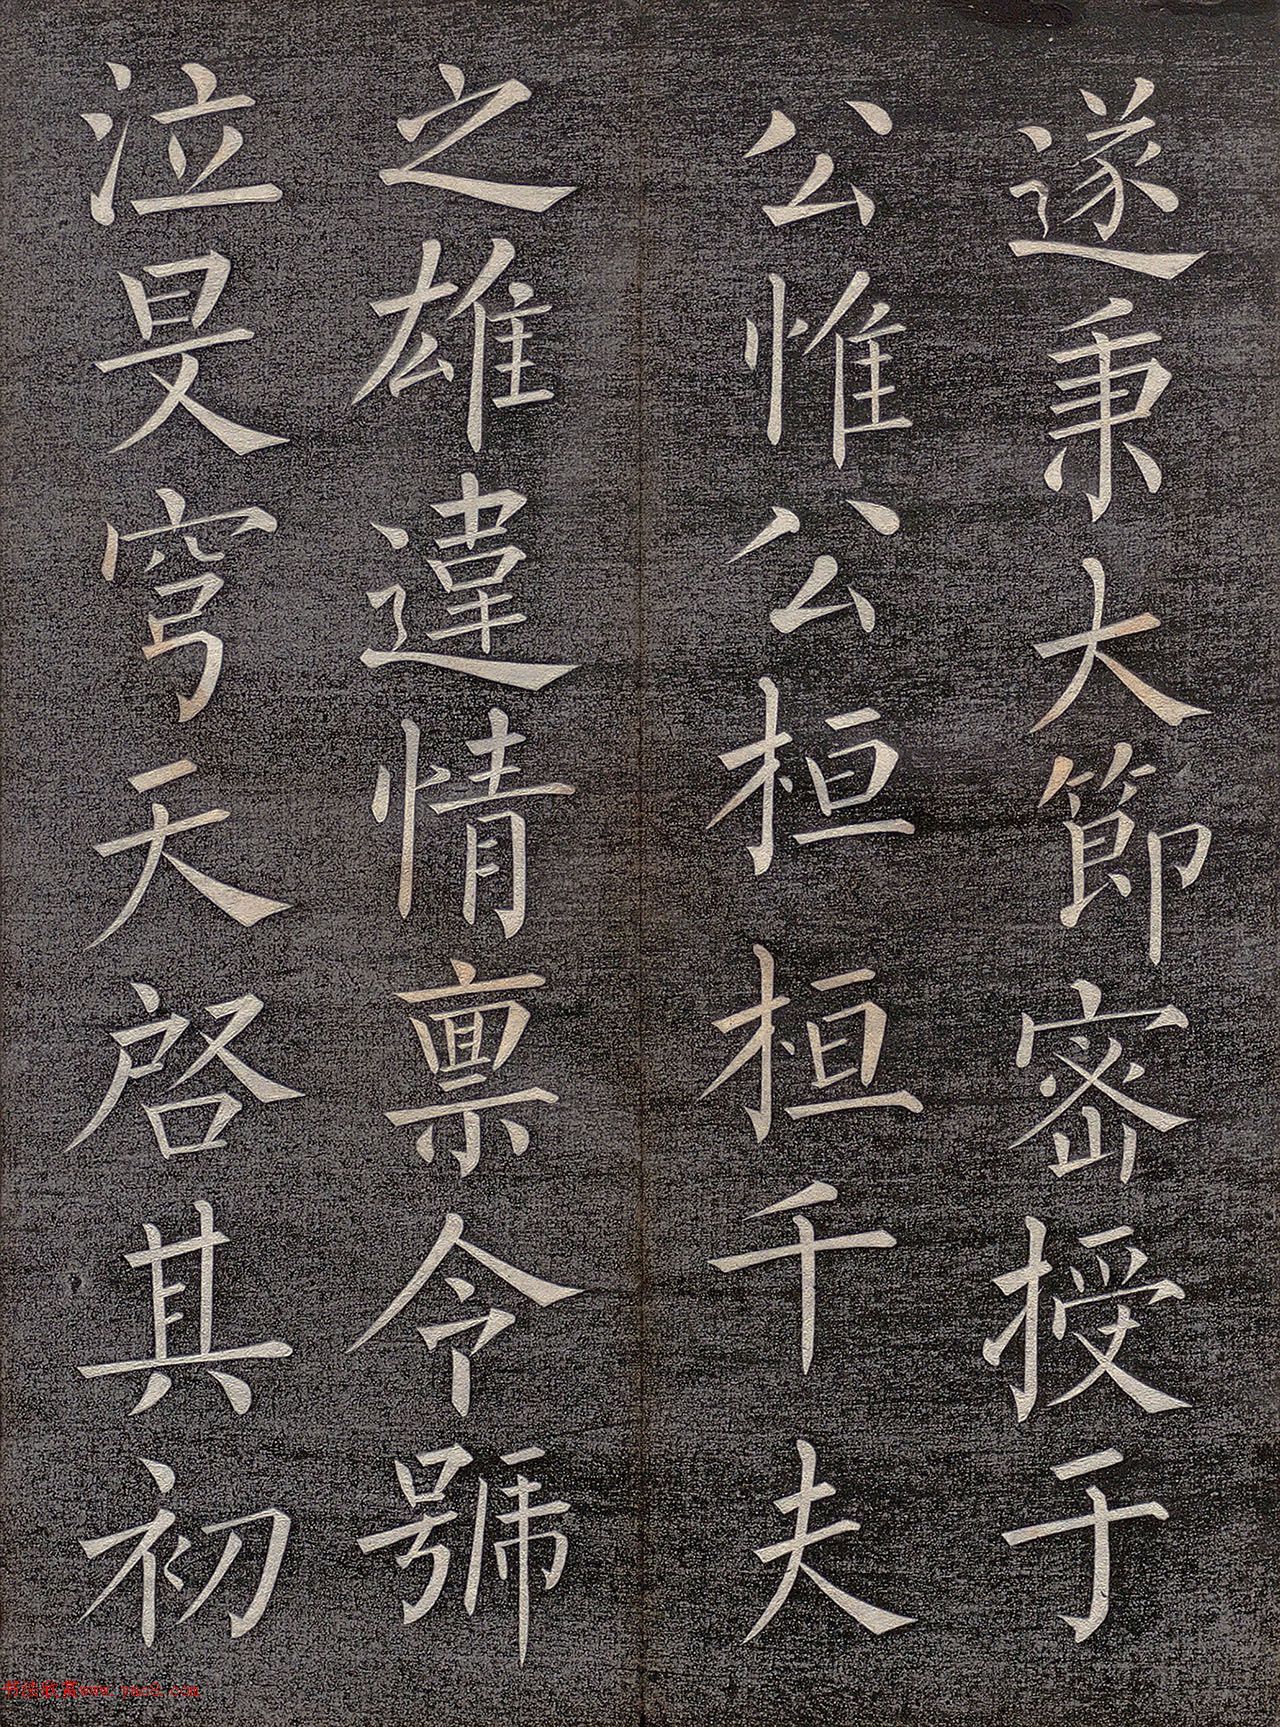 遂秉大節密授于
公惟公桓桓千夫
之雄違情禀令號
泣旻穹天啓其初